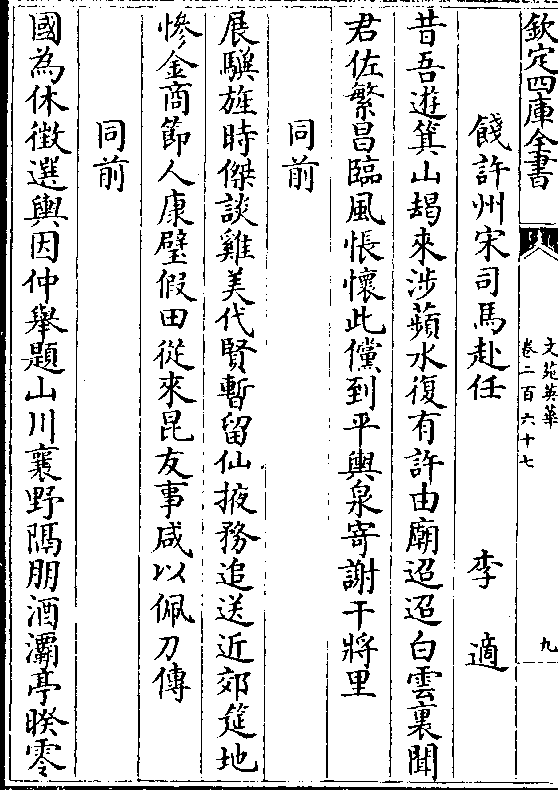 欽定四庫全書
文苑英華
卷二百六十七
九
餞許州宋司馬赴任 李適
昔吾遊箕山朅來涉蘋水復有許由廟迢迢白雲裏聞
君佐繁昌臨風悵懷此儻到平輿泉寄謝干將里
同前
展驥旌時傑談雞美代賢暫留仙掖務追送近郊筵地
慘金商節人康璧假田從來昆友事咸以佩刀傳
同前
國為休徵選輿因仲舉題山川襄野隔朋酒灞亭暌零